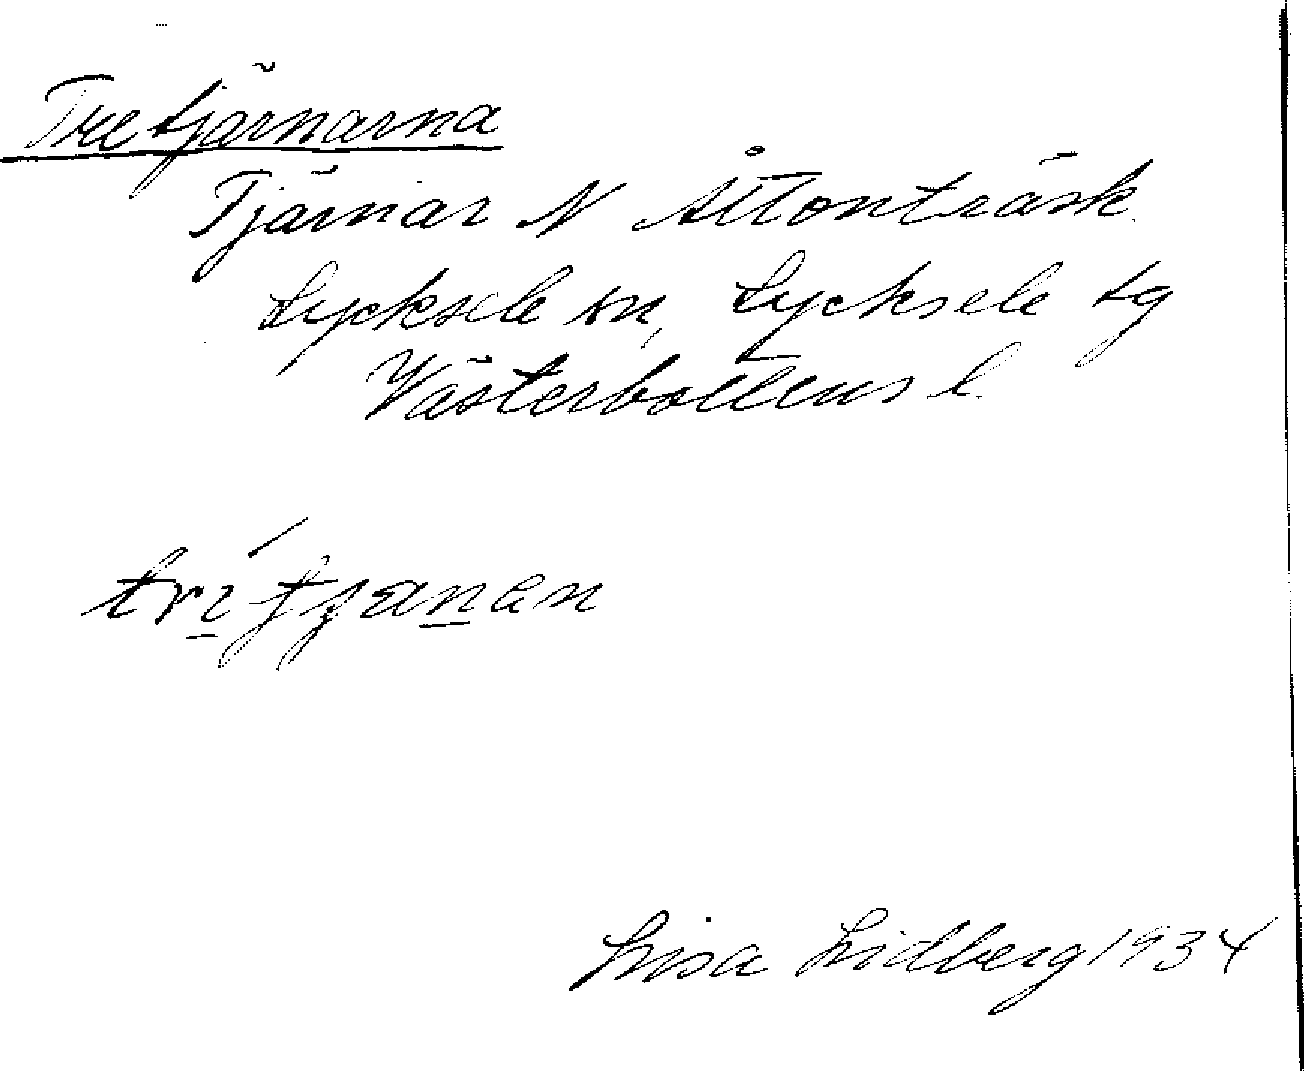 Tretjärnarna
Tjärnar N Åttonträsk
Lycksele sn, Lycksele tg
Västerbottens l.
Lisa Lidberg 1934